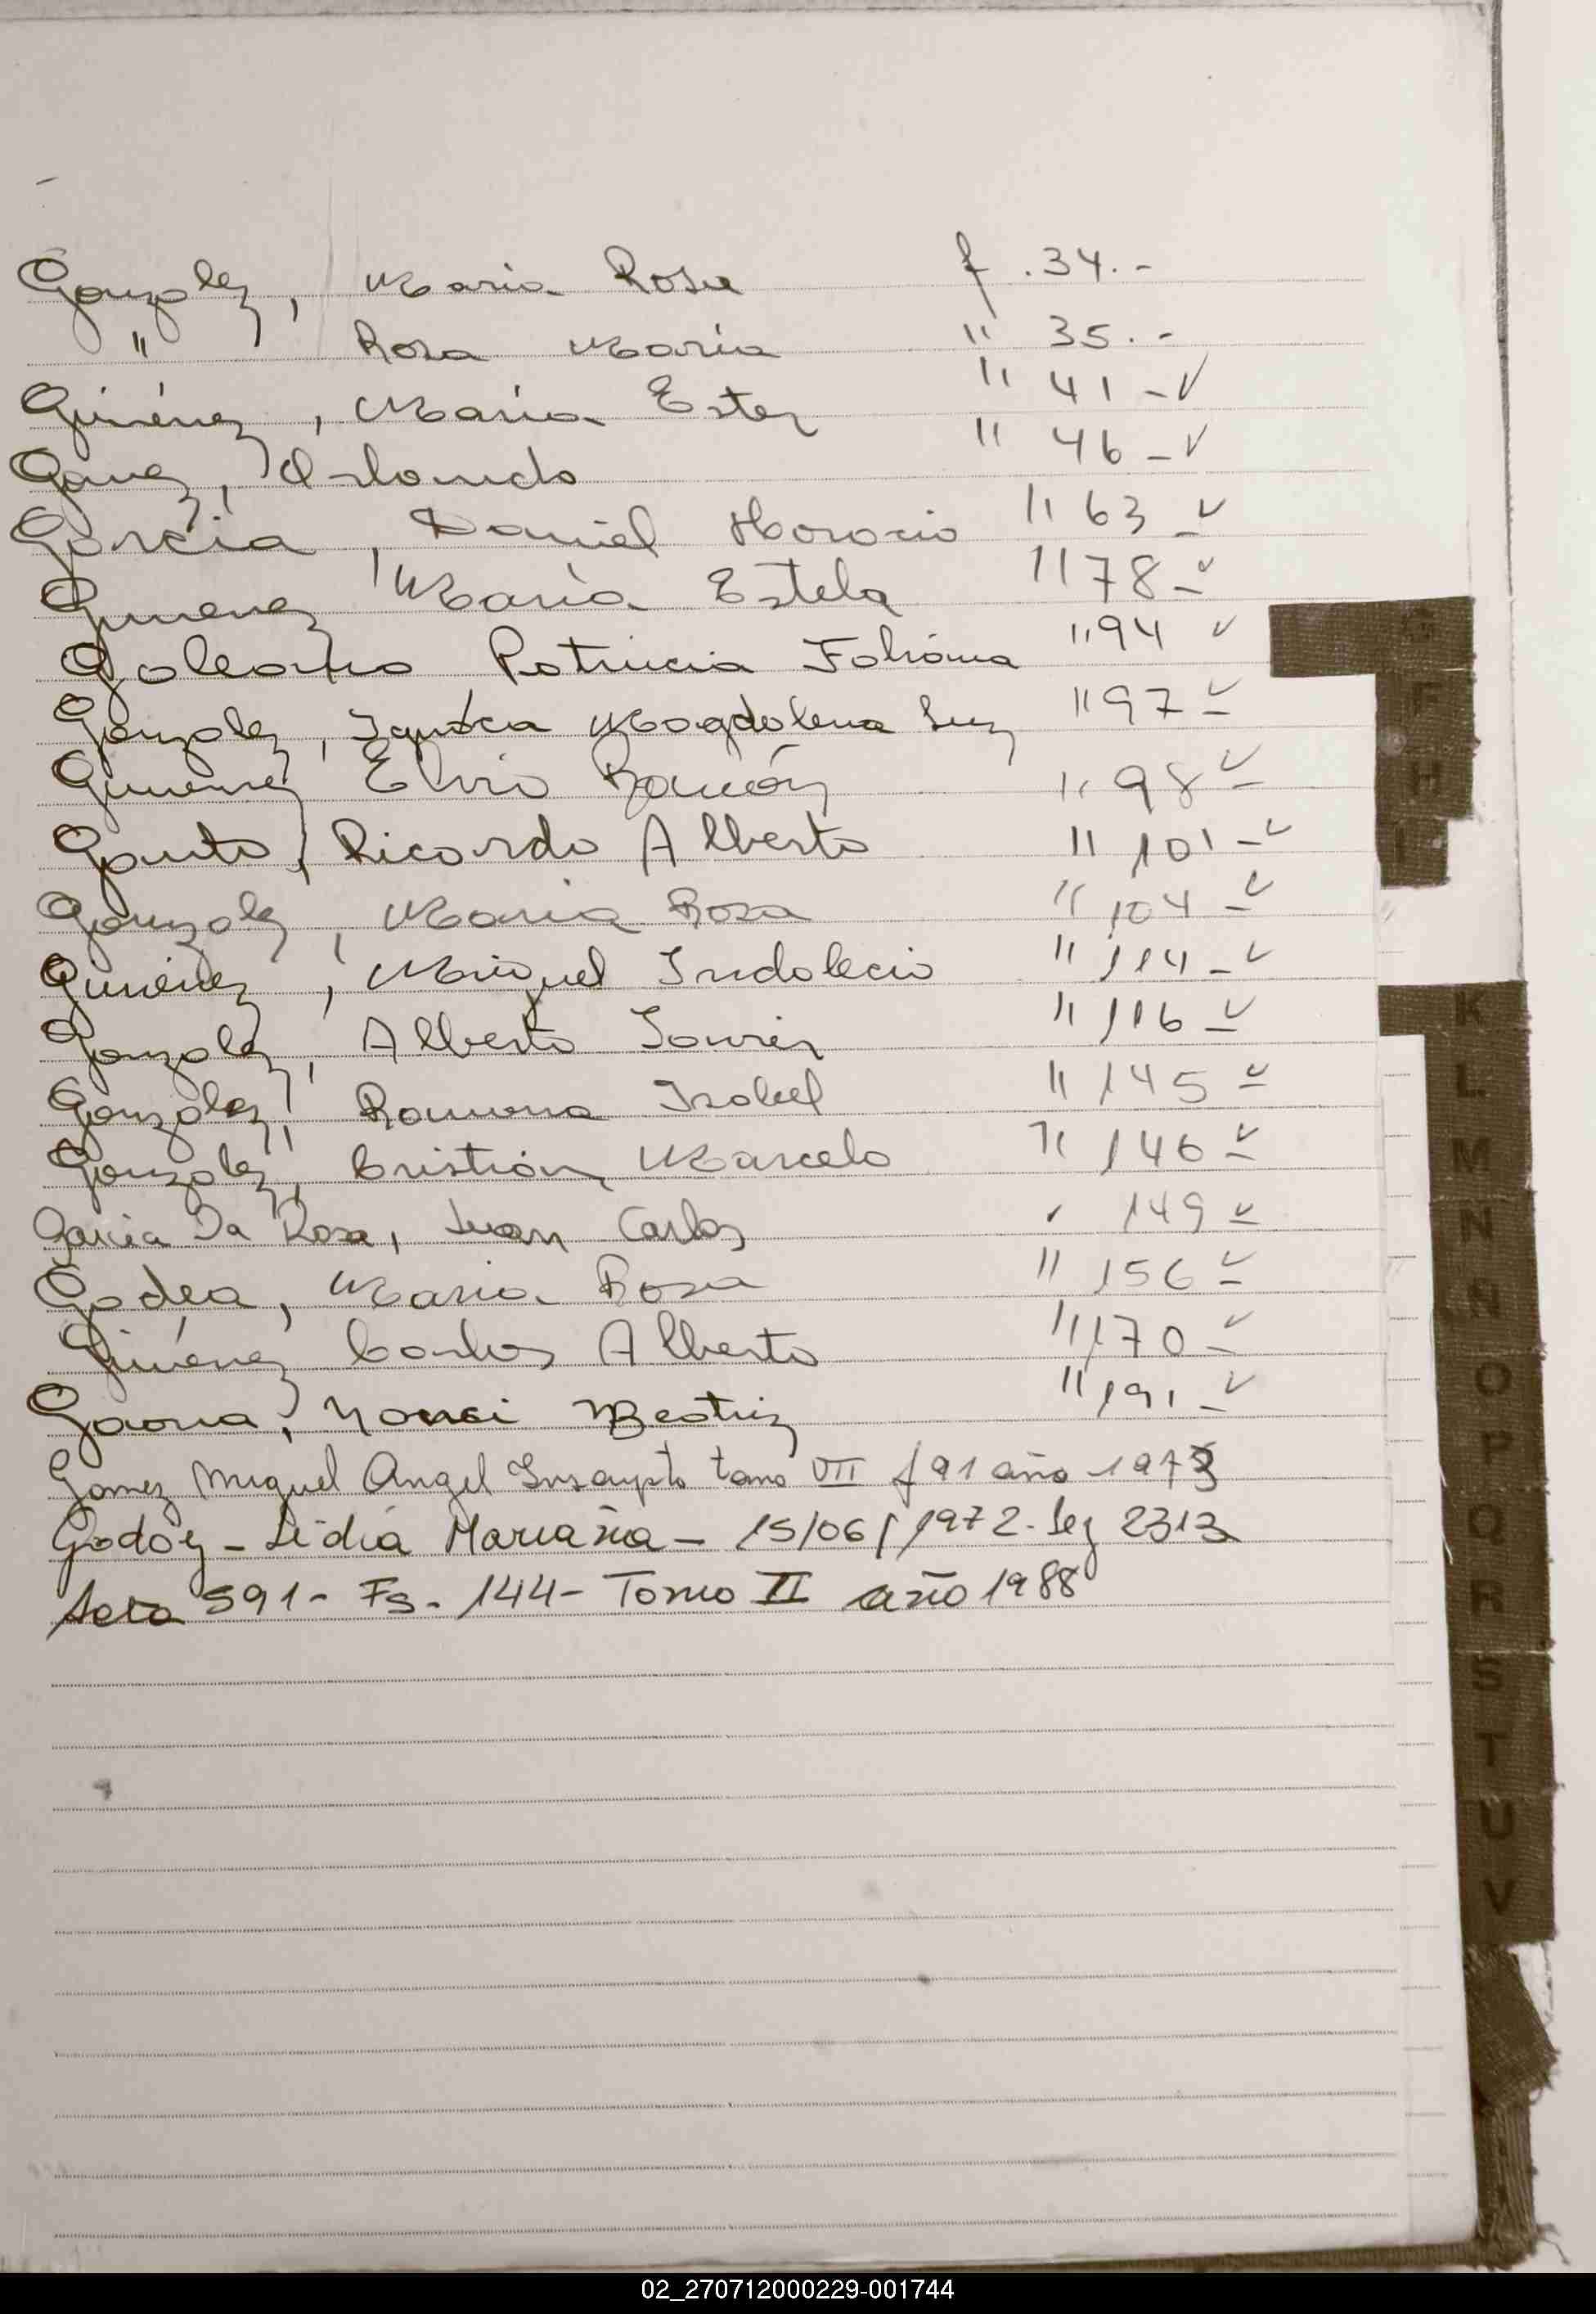 Gonzalez, Maria Rosa f. 34.-
" Rosa Maria " 35.-
Giménez, Maria Ester " 41 -✓
Gomez, Orlando " 46 -✓
Garcia, Daniel Horacio " 63 -✓
Gimenez, María Estela " 78 -✓
Galeano Patricia Fabiana " 94 ✓
Gonzalez, Ignacia Magdalena Luz " 97 -✓
Gimenez, Elvio Ramón " 98 -✓
Gauto, Ricardo Alberto " 101 -✓
Gonzalez, Maria Rosa " 104 -✓
Giménez, Miguel Indalecio " 114 -✓
Gonzalez, Alberto Javier " 116 -✓
González, Ramona Isabel " 145 -✓
Gonzalez, Cristián Marcelo " 146 -✓
Garcia Da Rosa, Juan Carlos " 149 -✓
Godea, Maria Rosa " 156 -✓
Giménez Carlos Alberto " 170 -✓
Gaona, Nanci Beatriz " 191 -✓
Gomez Miguel Angel Inscripto tomo VII f 91 año 1973
Godoy - Lidia Mariana - 15/06/1972. Leg 2313
Acta 591 - Fs. 144 - Tomo II año 1988
G
F
H
I
K
L
M
N
Ñ
O
P
Q
R
S
T
U
V
02_270712000229-001744